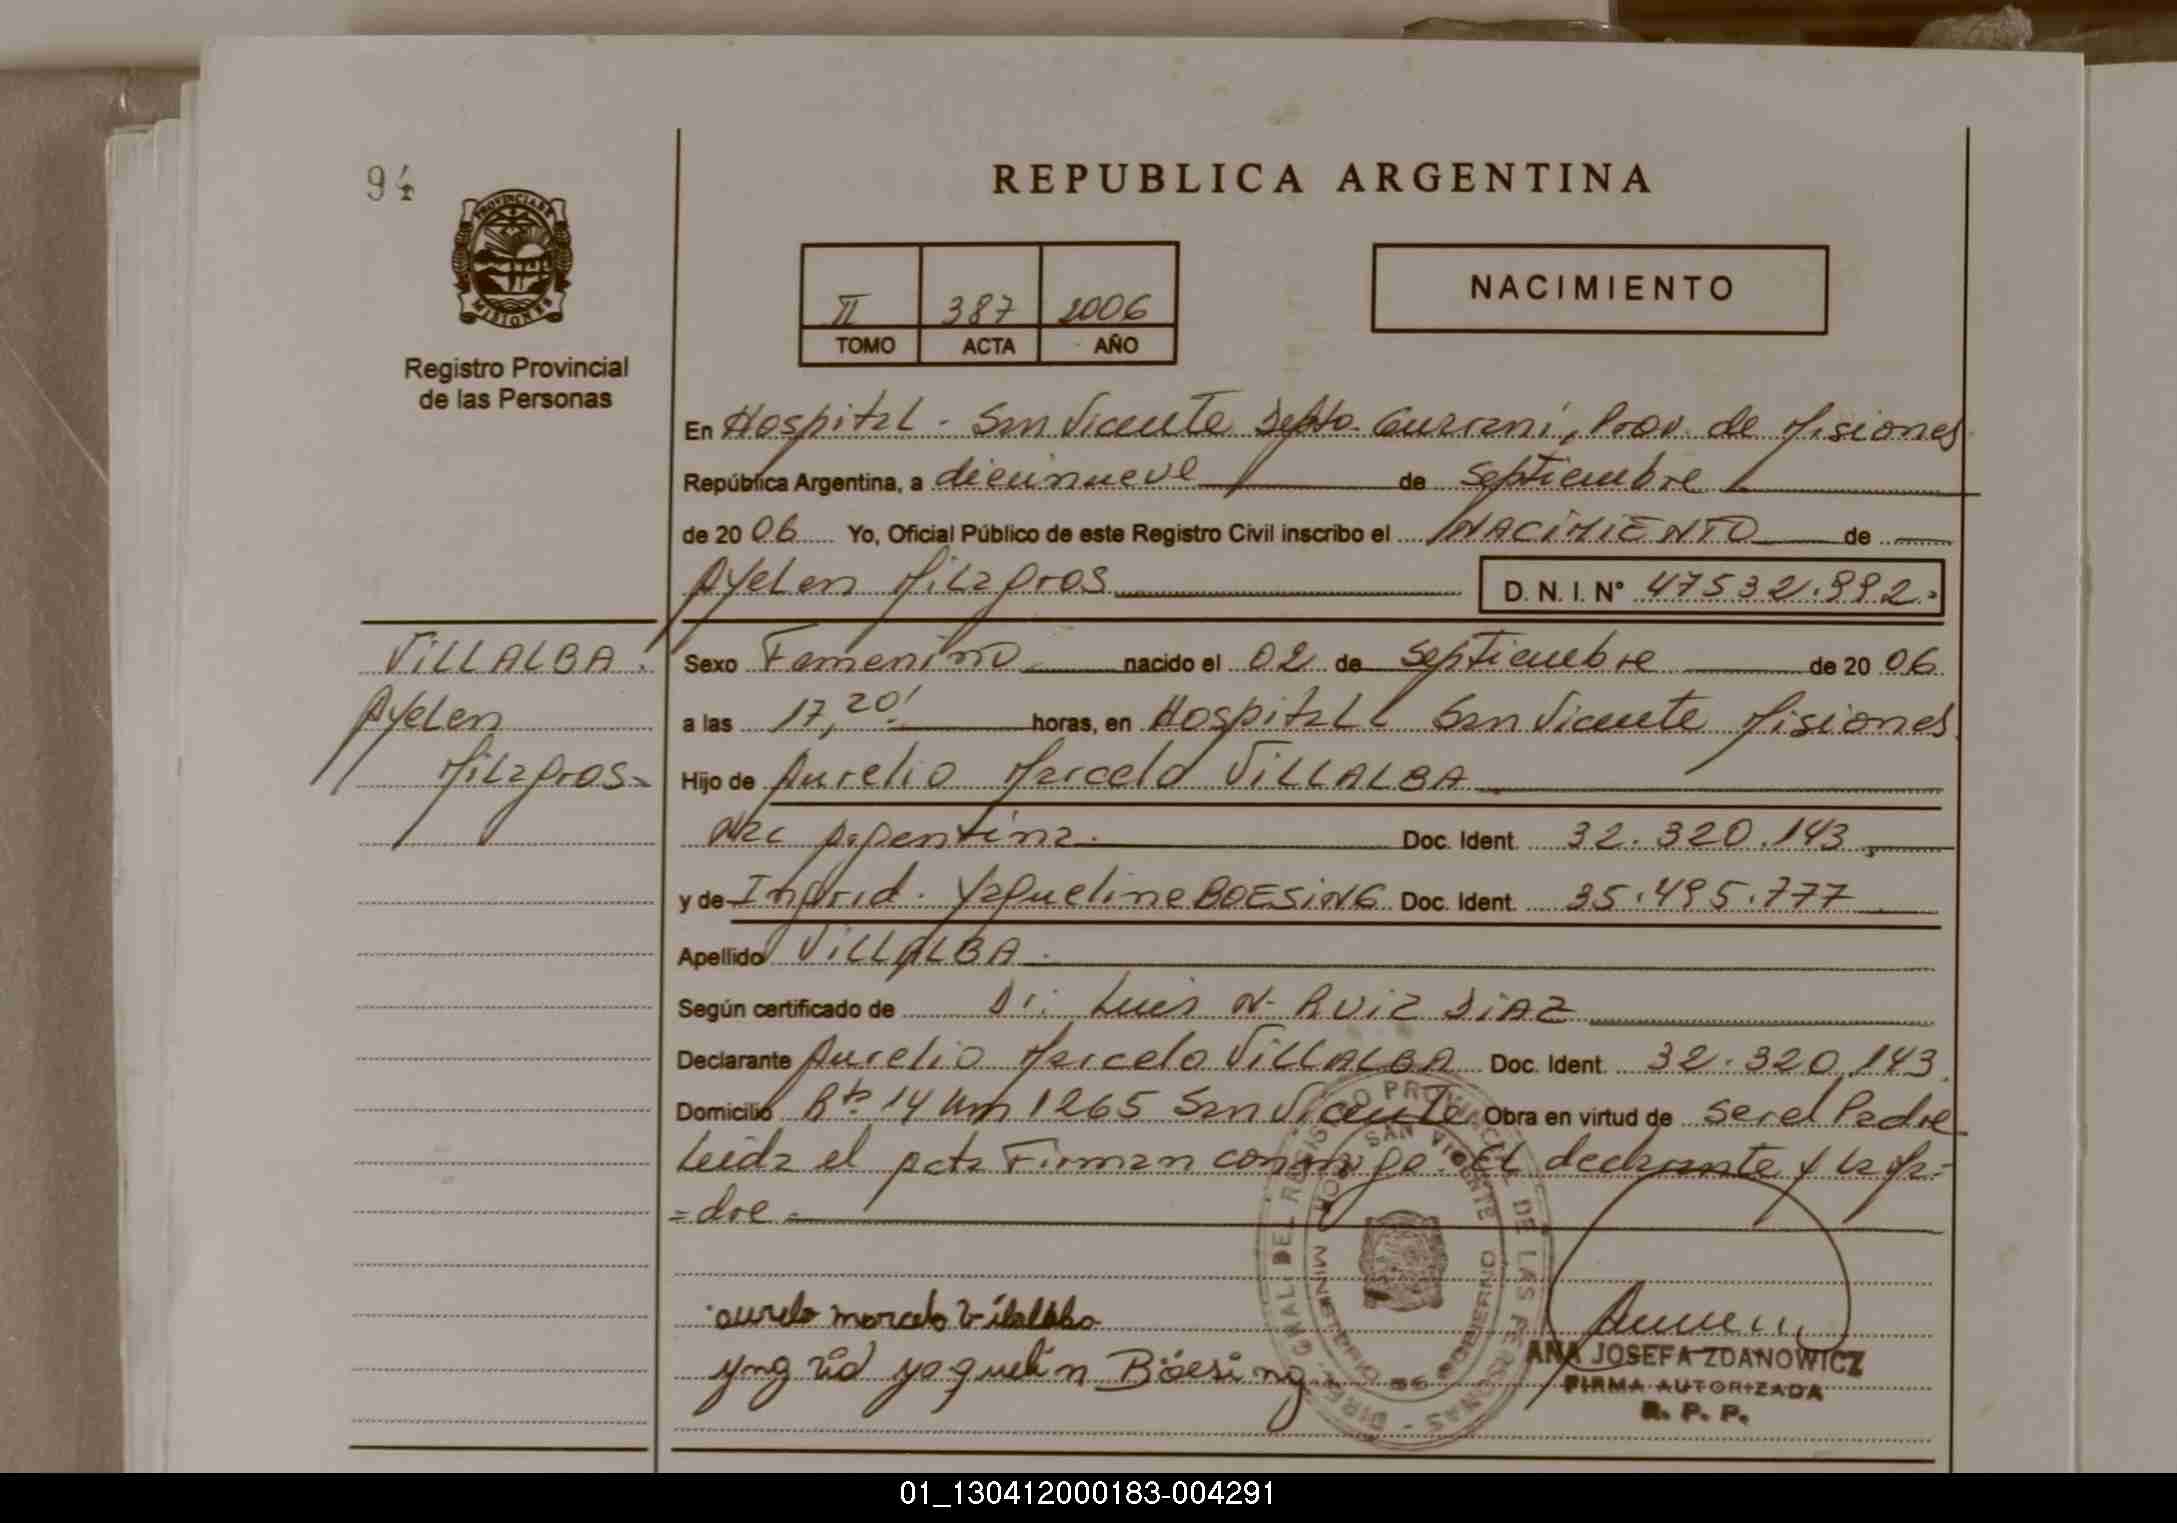 94
REPUBLICA ARGENTINA
PROVINCIA DE
MISIONES
Registro Provincial
de las Personas
II 387 2006
TOMO ACTA AÑO
NACIMIENTO
En Hospital - San Vicente Depto Guarani, Prov. de Misiones
República Argentina, a diecinueve de Septiembre
de 2006 Yo, Oficial Público de este Registro Civil inscribo el NACIMIENTO de
Ayelen Milagros D. N. I. N° 47532.992.
VILLALBA.
Ayelen
Milagros=
Sexo Femenino nacido el 02 de Septiembre de 2006
a las 17,20' horas, en Hospital San Vicente Misiones
Hijo de Aurelio Marcelo VILLALBA
Nac Argentina. Doc. Ident. 32.320.143
y de Ingrid. Yaqueline BOESING Doc. Ident. 35.495.777
Apellido VILLALBA.
Según certificado de Dr. Luis N. RUIZ DIAZ
Declarante Aurelio Marcelo VILLALBA Doc. Ident. 32.320.143.
Domicilio Rta. 14 Km 1265 San Vicente Obra en virtud de ser el Padre
Leida el acta Firman conmigo. El declarante y la Ma=
=dre=
aurelo marcelo Vilallba
yngrid yaquelin Böesing
ANA JOSEFA ZDANOWICZ
FIRMA AUTORIZADA
R. P. P.
01_130412000183-004291